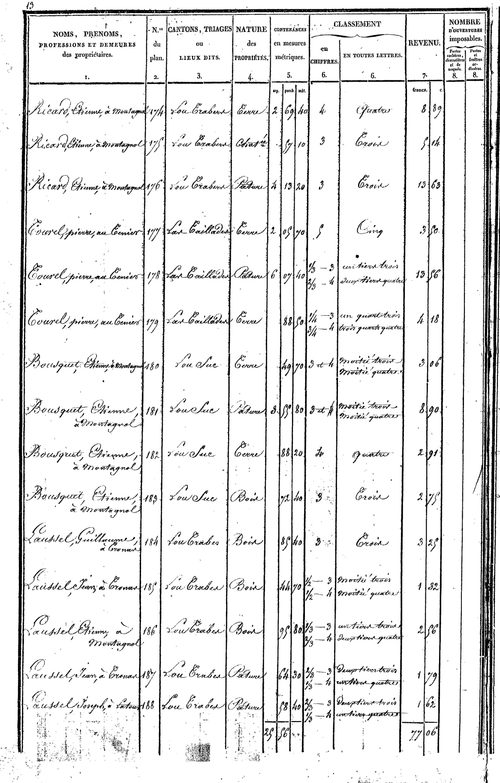 13
NOMS, PRENOMS, PROFESSIONS ET DEMEURES des propriétaires. N.os du plan. CANTONS, TRIAGES ou LIEUX DITS. NATURE des PROPRIÉTÉS. CONTENANCES en mesures métriques. CLASSEMENT en CHIFFRES. EN TOUTES LETTRES. REVENU. NOMBRE D'OUVERTURES imposables.
1. 2. 3. 4. 5. 6. 6. 7. 8. 8.
francs. c.
Ricard, Etienne, à Montagnol 174 Lou Trabers Terre 2 69 40 4 Quatre 8 89
Ricard, Etienne, à Montagnol 175 Lou Trabers 57 10 3 Trois 5 14
Ricard, Etienne, à Montagnol 176 Lou Trabers Pature 4 13 20 3 Trois 13 63
Tourel, pierre, au 177 Las Taillades Terre 2 05 70 5 Cinq 3 50
Tourel, pierre, au 178 Las Taillades Pature 6 07 40 1/3 — 3 un tiers trois
2/3 — 4 deux tiers quatre 13 56
Tourel, pierre, au 179 Las Taillades Terre 88 50 1/4 — 3 un quart trois
3/4 — 4 trois quarts quatre 4 18
Bousquet, Etienne, à Montagnol 180 Lou Suc Terre 49 70 3 et 4 Moitié trois
Moitié quatre 3 06
Bousquet, Etienne, à Montagnol 181 Lou Suc Pature 3 55 80 3 et 4 Moitié trois
Moitié quatre 8 90
Bousquet, Etienne, à Montagnol 182 Lou Suc Terre 88 20 4 quatre 2 91
Bousquet, Etienne, à Montagnol 183 Lou Suc Bois 72 40 3 Trois 2 75
Laussel, Guillaume, à 184 Lou Trabes Bois 85 40 3 Trois 3 25
Laussel, Jean, à 185 Lou Trabes Bois 44 70 1/2 — 3 Moitié trois
1/2 — 4 Moitié quatre 1 32
Laussel, Etienne, à Montagnol 186 Lou Trabes Bois 95 80 1/3 — 3 un tiers trois
2/3 — 4 deux tiers quatre 2 56
Laussel, Jean, à 187 Lou Trabes Pature 64 30 2/3 — 3 deux tiers trois
1/3 — 4 un tiers quatre 1 79
Laussel, Joseph, à 188 Lou Trabes Pature 58 40 2/3 — 3 deux tiers trois
1/3 — 4 un tiers quatre 1 62
25 56 77 06